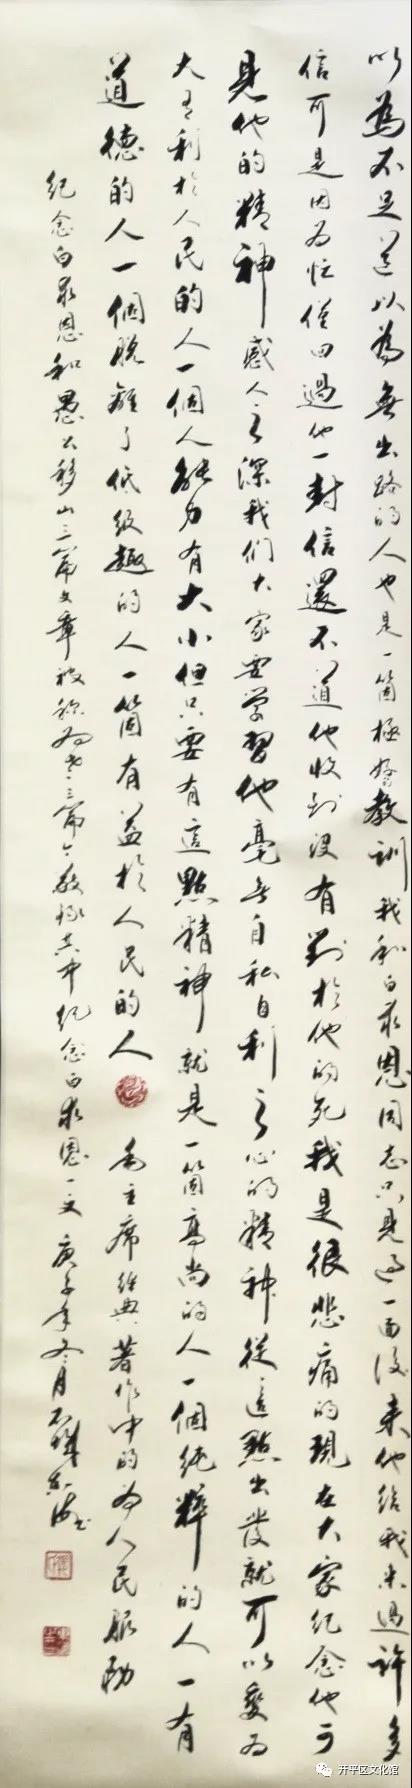 以為不足道以為無出路的人也是一箇極好教訓我和白求恩同志只見過一面後來他給我来過許多
信可是因为忙僅回過他一封信還不道他收到没有對於他的死我是很悲痛的現在大家纪念他可
見他的精神感人之深我们大家要学習他毫無自私自利之心的精神從這點出發就可以變为
大有利於人民的人一個人能力有大小但只要有這點精神就是一箇高尚的人一個純粹的人一有
道德的人一個脫離了低级趣的人一箇有益於人民的人 毛主席经典著作中的为人民服務
纪念白求恩和愚公移山三篇文章被称为老三篇今敬録其中纪念白求恩一文庚子年冬月
开平区文化馆